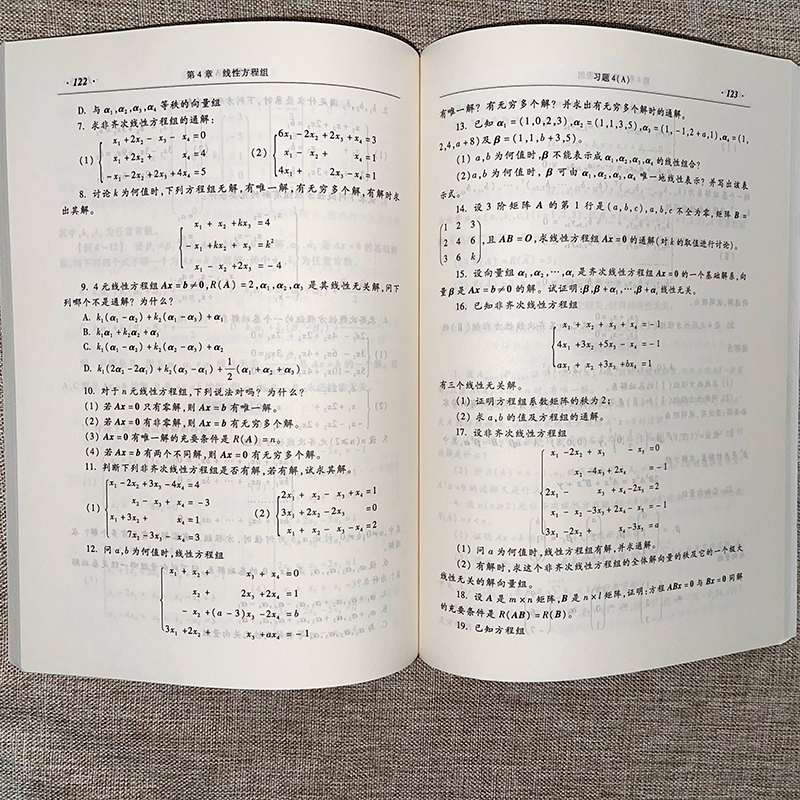 ·122· 第4章 线性方程组
D. 与α₁,α₂,α₃,α₄等秩的向量组
7. 求非齐次线性方程组的通解:
(1) { x₁+2x₂- x₃- x₄=0
x₁+2x₂+ x₄=4
-x₁-2x₂+2x₃+4x₄=5
(2) { 6x₁-2x₂+2x₃+x₄=3
x₁- x₂+ x₄=1
4x₁+ 2x₃-x₄=1
8. 讨论k为何值时,下列方程组无解,有唯一解,有无穷多个解,有解时求
出其解。
{ x₁+ x₂+kx₃=4
-x₁+kx₂+ x₃=k²
x₁- x₂+2x₃=-4
9. 4元线性方程组Ax=b≠0,R(A)=2,α₁,α₂,α₃是其线性无关解,问下
列哪个不是通解?为什么?
A. k₁(α₁-α₂)+k₂(α₁-α₃)+α₁
B. k₁α₁+k₂α₂+α₃
C. k₁(α₁-α₃)+k₂(α₂-α₃)+α₂
D. k₁(2α₂-2α₁)+k₂(α₃-α₁)+1/2(α₁+α₂+α₃)
10. 对于n元线性方程组,下列说法对吗?为什么?
(1) 若Ax=0只有零解,则Ax=b有唯一解。
(2) 若Ax=0有非零解,则Ax=b有无穷多个解。
(3) Ax=0有唯一解的充要条件是R(A)=n。
(4) 若Ax=b有两个不同解,则Ax=0有无穷多个解。
11. 判断下列非齐次线性方程组是否有解,若有解,试求其解。
(1) { x₁-2x₂+3x₃-4x₄=4
x₂- x₃+ x₄=-3
x₁+3x₂+ x₄=1
7x₂-3x₃-x₄=3
(2) { 2x₁+ x₂- x₃+x₄=1
3x₁+2x₂-2x₃ =0
x₁+ x₂- x₃-x₄=2
12. 问a,b为何值时,线性方程组
{ x₁+ x₂+ x₃+ x₄=0
x₂+ 2x₃+2x₄=1
- x₂+(a-3)x₃-2x₄=b
3x₁+2x₂+ x₃+ax₄=-1
习题4(A) ·123·
有唯一解?有无穷多个解?并求出有无穷多个解时的通解。
13. 已知α₁=(1,0,2,3),α₂=(1,1,3,5),α₃=(1,-1,2+a,1),α₄=(1,
2,4,a+8)及β=(1,1,b+3,5)。
(1) a,b为何值时,β不能表示成α₁,α₂,α₃,α₄的线性组合?
(2) a,b为何值时,β可由α₁,α₂,α₃,α₄唯一地线性表示?并写出该表
示式。
14. 设3阶矩阵A的第1行是(a,b,c),a,b,c不全为零,矩阵B=
(1 2 3
2 4 6
3 6 k),且AB=O,求线性方程组Ax=0的通解(对k的取值进行讨论)。
15. 设向量组α₁,α₂,…,αₜ是齐次线性方程组Ax=0的一个基础解系,向
量β是Ax=b≠0的解。试证明:β,β+α₁,…,β+αₜ线性无关。
16. 已知非齐次线性方程组
{ x₁+ x₂+ x₃+ x₄=-1
4x₁+3x₂+5x₃- x₄=-1
ax₁+ x₂+3x₃+bx₄=1
有三个线性无关解。
(1) 证明方程组系数矩阵的秩为2;
(2) 求a,b的值及方程组的通解。
17. 设非齐次线性方程组
{ x₁-2x₂+ x₃ =-1
x₂-4x₃+2x₄ =-1
2x₁- x₃+x₄-2x₅=1
3x₂ -x₄+ x₅=-3
3x₁-2x₂+ x₄-3x₅=a
(1) 问a为何值时,线性方程组有解,并求通解。
(2) 有解时,求这个非齐次线性方程组的全体解向量的秩及它的一个极大
线性无关的解向量组。
18. 设A是m×n矩阵,B是n×l矩阵,证明:方程ABx=0与Bx=0同解
的充要条件是R(AB)=R(B)。
19. 已知方程组